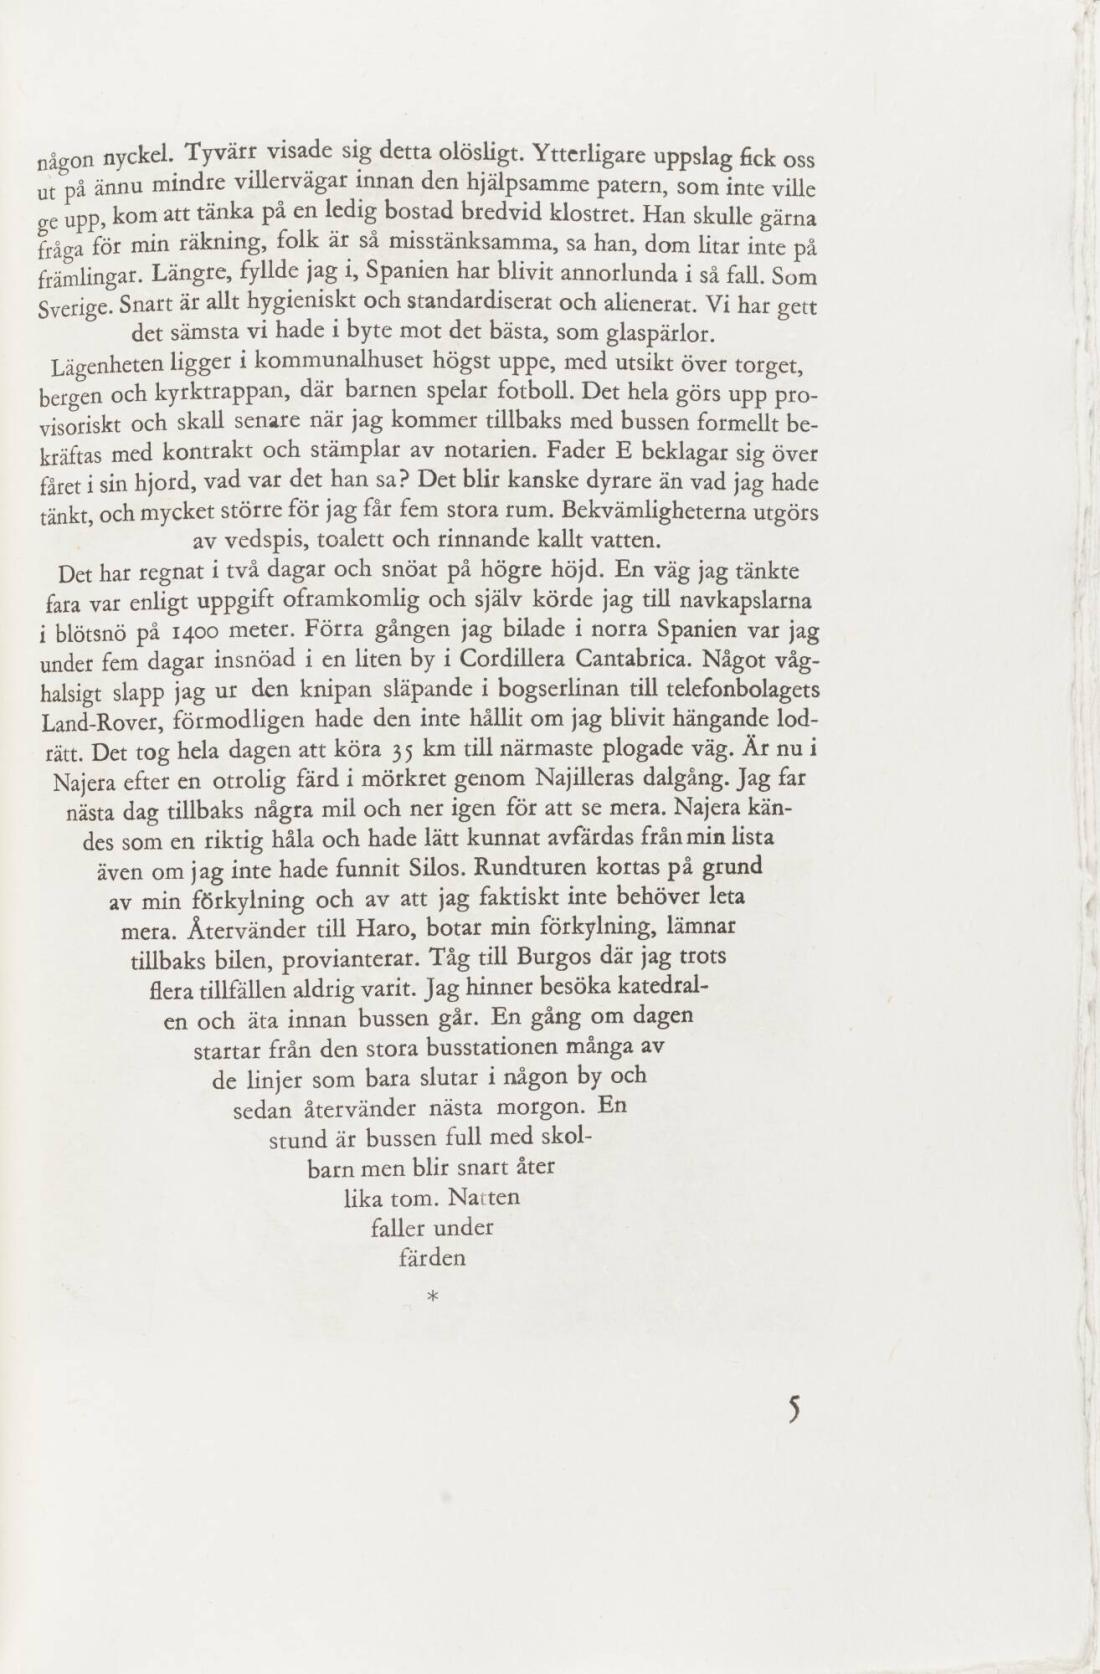 någon nyckel. Tyvärr visade sig detta olösligt. Ytterligare uppslag fick oss
ut på ännu mindre villervägar innan den hjälpsamme patern, som inte ville
ge upp, kom att tänka på en ledig bostad bredvid klostret. Han skulle gärna
fråga för min räkning, folk är så misstänksamma, sa han, dom litar inte på
främlingar. Längre, fyllde jag i, Spanien har blivit annorlunda i så fall. Som
Sverige. Snart är allt hygieniskt och standardiserat och alienerat. Vi har gett
det sämsta vi hade i byte mot det bästa, som glaspärlor.
Lägenheten ligger i kommunalhuset högst uppe, med utsikt över torget,
bergen och kyrktrappan, där barnen spelar fotboll. Det hela görs upp pro-
visoriskt och skall senare när jag kommer tillbaks med bussen formellt be-
kräftas med kontrakt och stämplar av notarien. Fader E beklagar sig över
fåret i sin hjord, vad var det han sa? Det blir kanske dyrare än vad jag hade
tänkt, och mycket större för jag får fem stora rum. Bekvämligheterna utgörs
av vedspis, toalett och rinnande kallt vatten.
Det har regnat i två dagar och snöat på högre höjd. En väg jag tänkte
fara var enligt uppgift oframkomlig och själv körde jag till navkapslarna
i blötsnö på 1400 meter. Förra gången jag bilade i norra Spanien var jag
under fem dagar insnöad i en liten by i Cordillera Cantabrica. Något våg-
halsigt slapp jag ur den knipan släpande i bogserlinan till telefonbolagets
Land-Rover, förmodligen hade den inte hållit om jag blivit hängande lod-
rätt. Det tog hela dagen att köra 35 km till närmaste plogade väg. Är nu i
Najera efter en otrolig färd i mörkret genom Najilleras dalgång. Jag far
nästa dag tillbaks några mil och ner igen för att se mera. Najera kän-
des som en riktig håla och hade lätt kunnat avfärdas från min lista
även om jag inte hade funnit Silos. Rundturen kortas på grund
av min förkylning och av att jag faktiskt inte behöver leta
mera. Återvänder till Haro, botar min förkylning, lämnar
tillbaks bilen, provianterar. Tåg till Burgos där jag trots
flera tillfällen aldrig varit. Jag hinner besöka katedral-
en och äta innan bussen går. En gång om dagen
startar från den stora busstationen många av
de linjer som bara slutar i någon by och
sedan återvänder nästa morgon. En
stund är bussen full med skol-
barn men blir snart åter
lika tom. Natten
faller under
färden
*
5